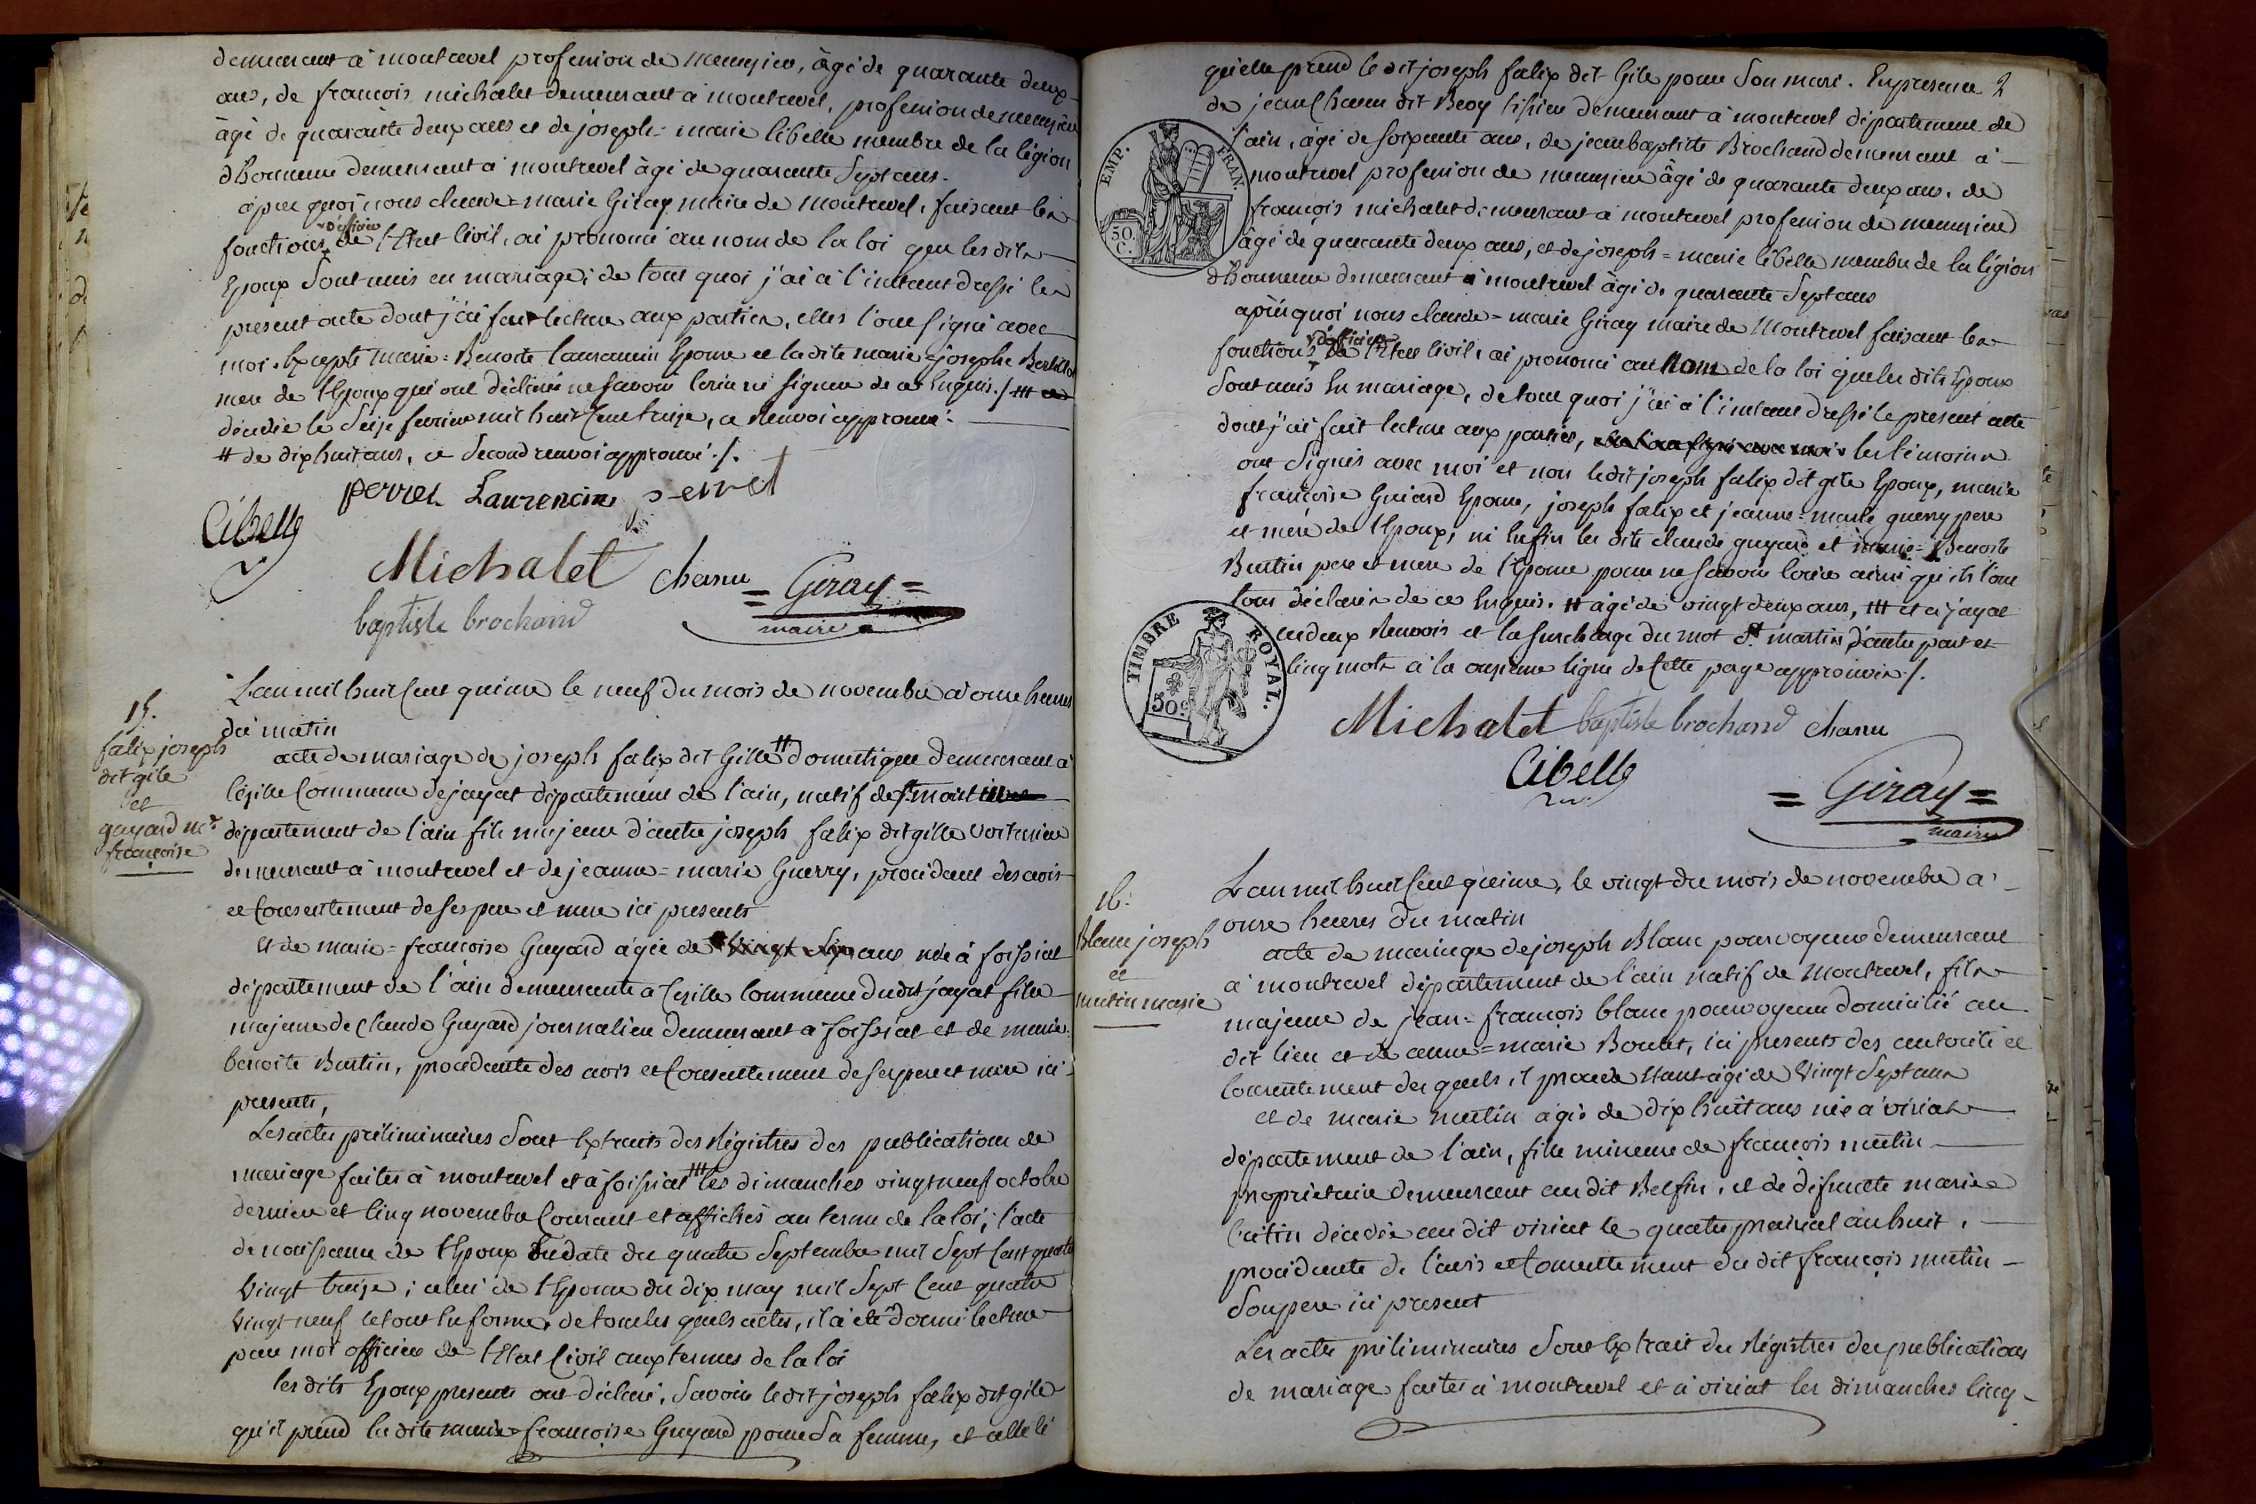 demeurant à montrevel profession de menuisier, âgé de quarante deux
ans, de francois michalet demeurant à montrevel, profession de menuisier
âgé de quarante deux ans et de joseph=marie Cibelle membre de la légion
d'honneur demeurant à montrevel âgé de quarante Sept ans.
après quoi nous claude=marie Giray maire de montrevel, faisant les
fonctions d'officier de l'Etat Civil, ai prononcé au nom de la loi que les dits
Epoux Sont unis en mariage; de tout quoi j'ai à l'instant dressé le
present acte dont j'ai fait lecture aux parties, elles l'ont Signé avec
moi. Excepté marie=Benoite Laurencin Epouse et la dite marie josephe
mere de l'Epoux qui ont déclaré ne Savoir Ecrire ni Signer de ce Enquis./. ttt
décédée le Seize fevrier mil huit Cent treize, ce Renvoi approuvé.
tt de dix huit ans, ce Second renvoi approuvé./.
perret Laurencin
Cibelle
Michalet chanu = Giray =
baptiste brochand maire
L'an mil huit Cent quinze le neuf du mois de novembre à onze heures
du matin
15.
falix joseph
dit gile
et
guyard m.ie
francoise
acte de mariage de joseph falix dit Gille tt domestique demeurant à
Césille Commune de jayat département de l'ain, natif de St martin
département de l'ain fils majeur d'autre joseph falix dit gille voiturier
demeurant à montrevel et de jeanne=marie Guerry, procédant des avis
et Consentement de Ses pere et mere ici presents
Et de marie=francoise Guyard âgée de vingt Six ans née à foissiat
département de l'ain demeurante à Cesille Commune dudit jayat fille
majeure de Claude Guyard journalier demeurant à foissiat et de marie=
benoite Burtin, procédante des avis et Consentement de Ses pere et mere ici
presents,
Les actes préliminaires Sont Extraits des Régistres des publications de
mariage faites à montrevel et à foissiat ttt les dimanches vingt neuf octobre
dernier et Cinq novembre Courant et affichés au terme de la loi; l'acte
de naissance de l'Epoux En date du quatre Septembre mil Sept Cent quatre
vingt treize; celui de l'Epouse du dix may mil Sept Cent quatre
vingt neuf le tout En forme, de tous les quels actes, il à été donné lecture
par moi officier de l'Etat Civil aux termes de la loi
les dits Epoux presents ont déclaré, Savoir le dit joseph falix dit gile
qu'il prend la dite marie=francoise Guyard pour Sa femme, et elle
qu'elle prend le dit joseph falix dit Gile pour Son mari. En presence 2
de jean Chanu dit Beoy tissier demeurant à montrevel département de
l'ain, âgé de Soixante ans, de jean baptiste Brochand demeurant à
montrevel profession de menuisier âgé de quarante deux ans, de
françois michalet demeurant à montrevel profession de menuisier
âgé de quarante deux ans, et de joseph=marie Cibelle membre de la légion
d'honneur demeurant à montrevel âgé de quarante Sept ans
EMP. FRAN.
50
C.
après quoi nous claude=marie Giray maire de Montrevel faisant les
fonctions d'officier de l'Etat Civil, ai prononcé au Nom de la loi que les dits Epoux
Sont unis En mariage, de tout quoi j'ai à l'instant dressé le present acte
dont j'ai fait lecture aux parties, elles l'ont Signé avec moi les témoins
ont Signés avec moi et non le dit joseph falix dit gile Epoux, marie
françoise Guiard Epouse, joseph falix et jeanne=marie guerry pere
et mere de l'Epoux, ni Enfin les dits claude guyard et marie=Benoite
Burtin pere et mere de l'Epouse pour ne Savoir Ecrire ainsi qu'ils l'ont
tous déclarés de ce Enquis. tt âgé de vingt deux ans, ttt et à jayat
les deux Renvois et la Surcharge du mot St martin d'autre part et
Cinq mots à la onzieme ligne de Cette page approuvés./.
TIMBRE ROYAL.
50c
Michalet baptiste brochand chanu
Cibelle
= Giray =
maire
16.
Blanc joseph
et
mutin marie
L'an mil huit Cent quinze, le vingt du mois de novembre à
onze heures du matin
acte de mariage de joseph Blanc pourvoyeur demeurant
à montrevel département de l'ain natif de Montrevel, fils
majeur de jean=francois blanc pourvoyeur domicilié au
dit lieu et de anne=marie Bouat, ici presents des autorité et
Consentement des quels il procède Etant âgé de Vingt Sept ans
et de marie mutin âgée de dix huit ans née à viriat
département de l'ain, fille mineure de francois mutin
propriétaire demeurant au dit Belfin, et de défunte marie
Catin décédée au dit viriat le quatre prairial an huit,
procédante de l'avis et Consentement du dit françois mutin
Son pere ici present
Les actes préliminaires Sont Extrait des Régistres des publications
de mariage faites à montrevel et à viriat les dimanches Cinq